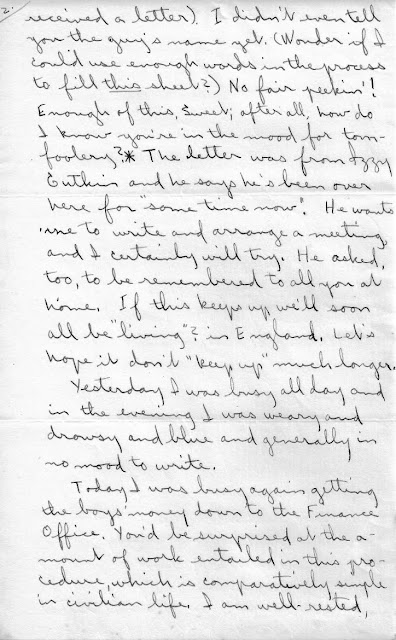 2.
received a letter). I didn't even tell
you the guy's name yet. (Wonder if I
could use enough words in the process
to fill this sheet?) No fair peekin'!
Enough of this, Sweet; after all, how do
I know you're in the mood for tom-
foolery?* The letter was from Izzy
Gutkin and he says he's been over
here for "some time now". He wants
me to write and arrange a meeting,
and I certainly will try. He asked,
too, to be remembered to all you at
home. If this keeps up we'll soon
all be "living"? in England. Let's
hope it don't "keep up" much longer.
Yesterday I was busy all day and
in the evening I was weary and
drowsy and blue and generally in
no mood to write.
Today I was busy again getting
the boys' money down to the Finance
Office. You'd be surprised at the a-
mount of work entailed in this pro-
cedure, which is comparatively simple
in civilian life. I am well-rested,